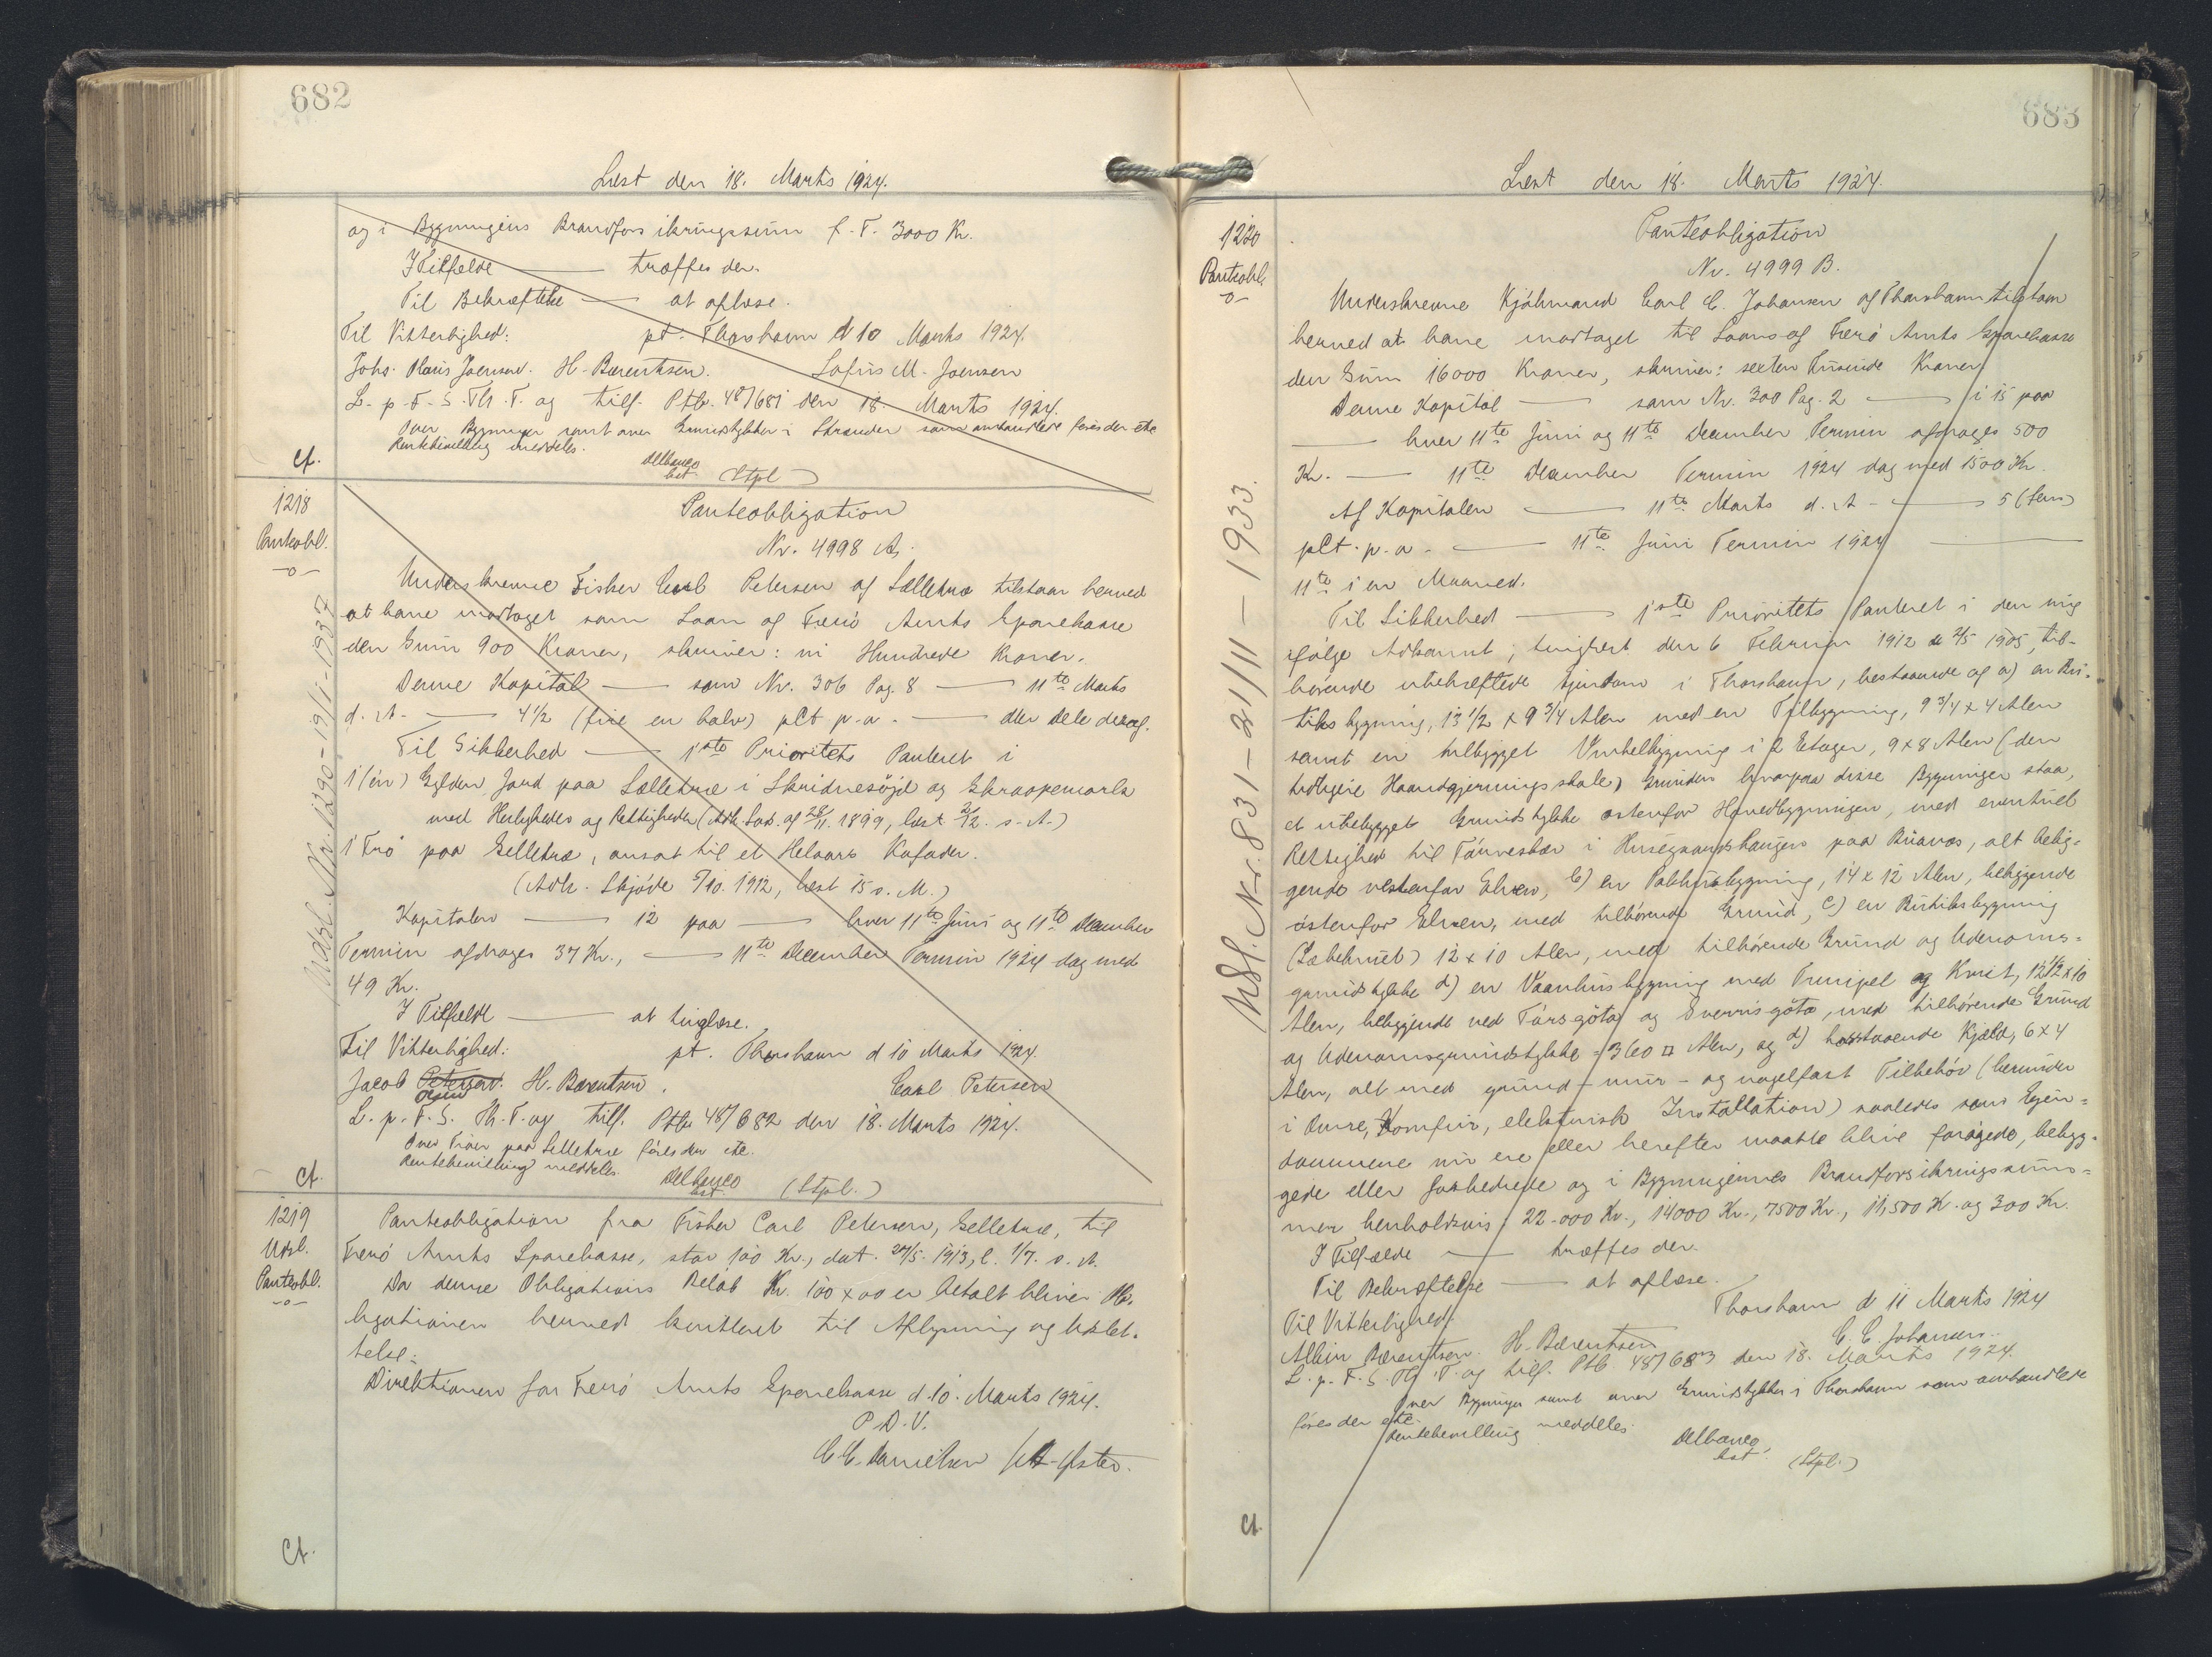 682
Læst den 18. Marts 1924.
og i Bygningens Brandforsikringssum f. T. 3000 Kr.
I Tilfælde — træffes der.
Til Bekræftelse — at oplæse.
Til Vitterlighed: pt. Thorshavn d 10 Marts 1924.
Johs. Hans Joensen. H. Bærentsen. Lafus M. Joensen
L. p. F. S. Th. T. og tilf. Ptb. 48/681 den 18. Marts 1924.
Over Bygninger samt over Grundstykker i Strander som omhandlede føres der ete
Rentebevilling meddeles.
Delbanco
cst. (Stpl)
Ct.
1218
Panteobl.
-o-
Panteobligation
Nr. 4998 A.
Underskrevne Fisker Carl Petersen af Selletræ tilstaar herved
at have modtaget som Laan af Færö Amts Sparekasse
den Sum 900 Kroner, skriver: ni Hundrede Kroner.
Denne Kapital — som Nr. 306 Pag. 8 — 11te Marts
d. A. — 4 1/2 (fire en halv) pCt p. a. — eller dele deraf.
Til Sikkerhed — 1ste Prioritets Panteret i
1 (én) Gylden Jord paa Selletræ i Skridnesöjd og Skraapemark
med Herligheder og Rettigheder (Adk. Sad. af 28/11. 1899, læst 2/12. s. A.)
1 Tro paa Selletræ, ansat til et Helaars Kofoder.
(Adk. Skjöde 5/10. 1912, læst 15 s. M.)
Kapitalen — 12 paa — hver 11te Juni og 11te December
Termin afdrages 37 Kr., — 11te December Termin 1924 dog med
49 Kr.
I Tilfælde — at tinglæse.
Til Vitterlighed: pt. Thorshavn d 10 Marts 1924.
Jacob Petersen. H. Bærentsen. Carl Petersen
L. p. F. S. Th. T. og tilf. Ptb. 48/682 den 18. Marts 1924.
Over Troer paa Selletræ føres der ete.
Rentebevilling meddeles.
Delbanco
cst. (Stpl.)
Ct.
Udsl. Nr. 1290 - 19/1 - 1937
1219
Udsl.
Panteobl.
-o-
Panteobligation fra Fisker Carl Petersen, Selletræ, til
Færö Amts Sparekasse, stor 100 Kr., dat. 27/5. 1913, l. 1/7. s. A.
Da denne Obligations Belöb Kr. 100 x 00 er betalt bliver Ob-
ligationen herved kvitteret til Aflysning og Udslet-
telse.
Direktionen for Færö Amts Sparekasse d. 10. Marts 1924.
P. D. V.
C. C. Danielsen
Ct.
683
Læst den 18. Marts 1924.
1220
Panteobl.
-o-
Panteobligation
Nr. 4999 B.
Underskrevne Kjöbmand Carl C. Johansen af Thorshavn tilstaar
herved at have modtaget til Laans af Færö Amts Sparekasse
den Sum 16000 Kroner, skriver: sexten Tusinde Kroner.
Denne Kapital — som Nr. 300 Pag. 2 — i 15 paa
— hver 11te Juni og 11te December Termin afdrages 500
Kr. — 11te December Termin 1924 dog med 1500 Kr.
Af Kapitalen — 11te Marts d. A. — 5 (fem)
pCt. p. a. — 11te Juni Termin 1924 —
11te i en Maaned.
Til Sikkerhed — 1ste Prioritets Panteret i den mig
ifölge Adkomst, tinglæst den 6 Februar 1912 & 2/5 1905, til-
hörende ubehæftede Ejendom i Thorshavn, bestaaende af a) en Bu-
tiks bygning, 13 1/2 x 9 3/4 Alen med en Tilbygning, 9 3/4 x 4 Alen
samt en tilbygget Vinkelbygning i 2 Etager, 9 x 8 Alen (den
tidligere Haandgjerningsskole) Grunden hvorpaa disse Bygninger staa,
et ubebygget Grundstykke østenfor Hovedbygningen, med eventuel
Rettighed til Törvesker i Husegaardshaugen paa Buanos, alt belig-
gende vestenfor Elven, b) en Pakhusbygning, 14 x 12 Alen, beliggende
östenfor Elven, med tilhörende Grund, c) en Butiksbygning
12 x 10 Alen, med tilhörende Grund og Udenoms-
grundstykke d) en Vaanhusbygning med Frespel og Kvist, 12 1/2 x 10
Alen, beliggende ved Törsgöta og Sverrisgöta, med tilhörende Grund
og Udenomsgrundstykke = 360 □ Alen, og d) hosstaaende Kjeld, 6 x 4
Alen, alt med grund- mur- og nagelfast Tilbehör (herunder
i Ovne, Komfur, elektrisk Installation) saaledes som Ejen-
dommene nu ere eller herefter maatte blive forögede, bebyg-
gede eller forbedrede og i Bygningernes Brandforsikringssum-
mer henholdsvis 22.000 Kr., 14000 Kr., 7500 Kr., 11,500 Kr. og 300 Kr.
I Tilfælde — træffes der.
Til Bekræftelse — at oplæse.
Thorshavn d 11 Marts 1924
Til Vitterlighed:
C. C. Johansen.
Albin Bærentsen. H. Bærentsen
L. p. F. S. Th. T. og tilf. Ptb. 48/683 den 18. Marts 1924.
Over Bygninger samt over Grundstykker i Thorshavn som omhandlede
føres der ete.
Rentebevilling meddeles.
Delbanco,
cst. (Stpl.)
Ct.
Udsl. Nr. 831 - 21/11 - 1933.